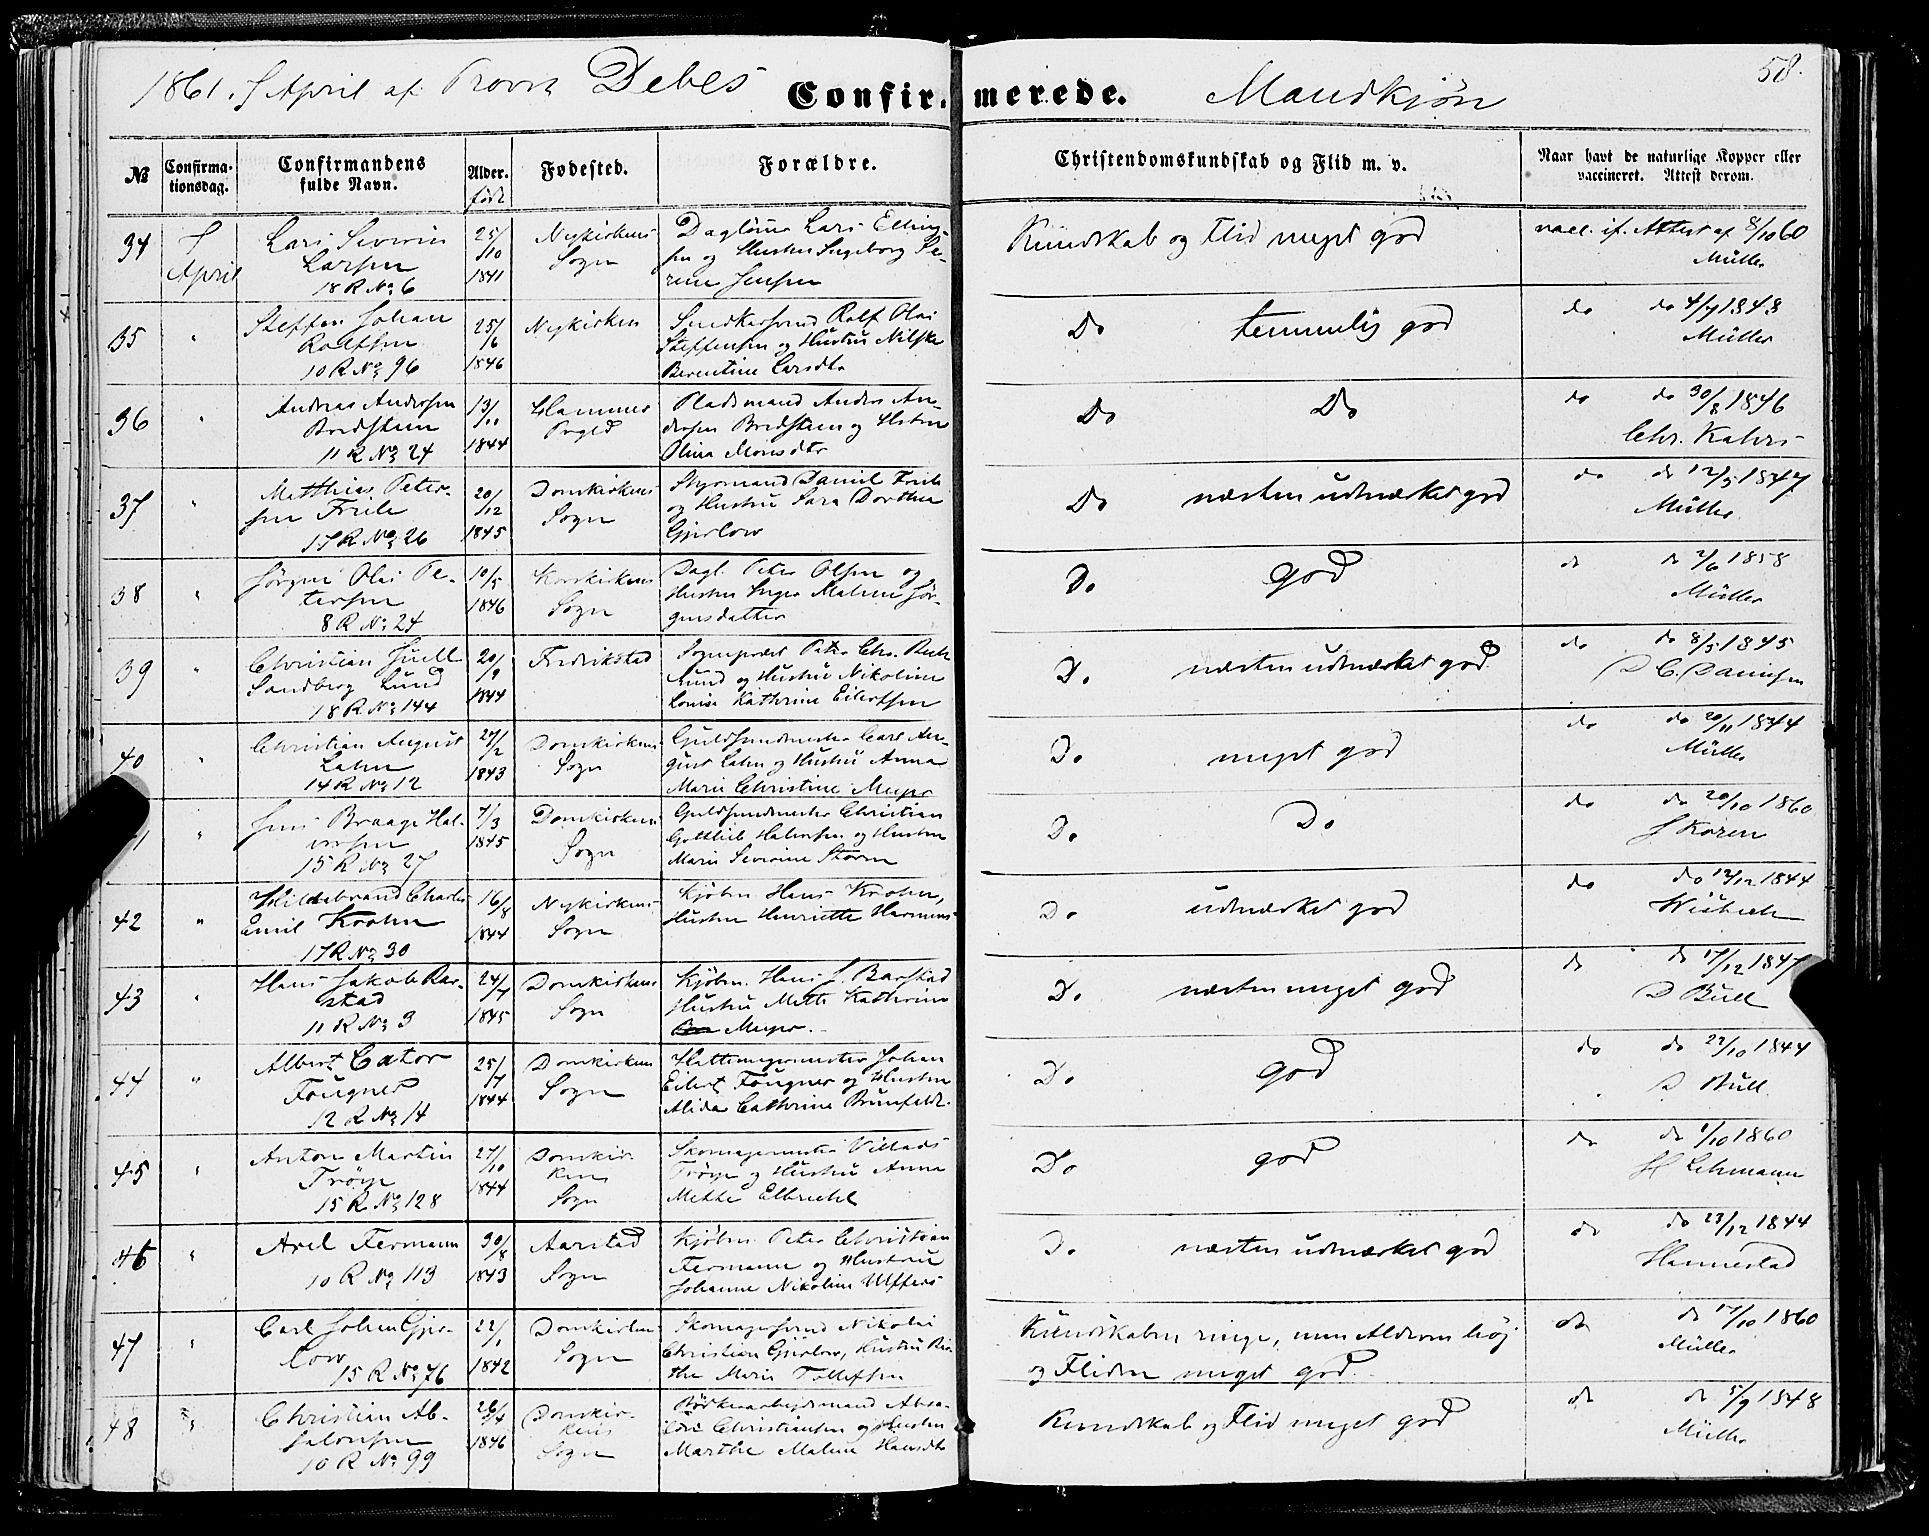 1861. 7 April af Provst Debes
Confirmerede.
Mandkjøn
58.
№
Confirmationsdag.
Confirmandens fulde Navn.
Alder.
født
Fødested.
Forældre.
Christendomskundskab og Flid m. v.
Naar havt de naturlige Kopper eller vaccineret. Attest derom.
34 7 April
Lars Severin
Larsen
18 R No 6
25/10 1841
Nykirkens
Sogn
Dagløner Lars Elling-
sen og Hustru Ingeborg Se-
rine Jensen
Kundskab og Flid meget god
vacc. if. Attest af 8/10 60
Müller
35 "
Steffen Johan
Rolfsen
10 R No 96
25/6 1846
Nykirken
Snedkersvend Rolf Olai
Steffensen og Hustru Nilske
Berentine Larsdtr
Do temmelig god
do do 4/9 1848
Müller
36 "
Andreas Andersen
Bredsteen
11 R No 24
13/11 1844
Hammer
Prgld
Pladsmand Anders An-
dersen Bredsteen og Hstru
Olina Monsdtr
Do Do
do do 30/8 1846
Chr. Kahrs
37 "
Matthias Peter-
sen Friele
17 R No 26
20/12 1845
Domkirkens
Sogn
Styrmand Daniel Friele
og Hustru Sara Dorthea
Gjerløw
Do næsten udmærket god
do do 12/5 1847
Müller
38 "
Jørgen Olai Pe-
tersen
8 R No 24
10/5 1846
Korskirkens
Sogn
Dagl. Peter Olsen og
Hustru Inger Malene Jør-
gensdatter
Do god
do do 2/6 1858
Müller
39 "
Christian Juell
Sandberg Lund
18 R No 144
20/9 1844
Fredrikstad
Sogneprest Peter Chr. Bech
Lund og Hustru Nikoline
Louise Kathrine Eilertsen
Do næsten udmærket god
do do 8/5 1845
D C. Danielsen
40 "
Christian August
Lahn
14 R No 12
27/2 1843
Domkirkens
Sogn
Guldsmedmester Carl Au-
gust Lahn og Hustru Anna
Marie Christine Meyer
Do meget god
do do 20/11 1844
Müller
1 "
Jens Braage Hal-
vorsen
15 R No 27
7/3 1845
Domkirkens
Sogn
Guldsmedmester Christian
Gottlieb Halvorsen og Hustru
Marie Severine Storm
Do Do
do do 20/10 1860
J Koren
42 "
Hildebrand Charles
Emil Krohn
17 R No 30
16/8 1844
Nykirkens
Sogn
Kjøbm Hans Krohn,
Hustru Henriette Harmens
Do udmærket god
do do 12/12 1844
43 "
Hans Jakob Bar-
stad
11 R No 3
24/7 1845
Domkirkens
Sogn
Kjøbm. Hans J. Barstad
Hustru Mette Kathrine
Meyer.
Do næsten meget god
do do 17/12 1847
D Bull
44 "
Albert Cator
Fougner
12 R No 14
25/7 1844
Domkirkens
Sogn
Hattemagermester Johan
Eilert Fougner og Hustru
Alida Cathrine Brunfeldt.
Do god
do do 22/10 1844
D Bull.
45 "
Anton Martin
Trøye
15 R No 128
27/10 1844
Domkir-
kens
Sogn
Skomagermester Villads
Trøye og Hustru Anna
Mette Elbrecht
Do god
do do 1/10 1860
H Lehmann
46 "
Axel Fermann
10 R No 113
30/8 1843
Aarstad
Sogn
Kjøbm. Peter Christian
Fermann og Hustrue
Johanne Nikoline Ulffers
Do næsten udmærket god
do do 23/12 1844
Hannestad
47 "
Carl Johan Gjer-
løw
15 R No 76
22/1 1842
Domkirkens
Sogn
Skomagersvend Nikolai
Christian Gjerløw, Hustru Bir-
the Marie Tollefsen
Kundskaben ringe, men Alderen høj
og Fliden meget god.
do do 17/10 1860
Müller
48 "
Christian Ab-
salonsen
10 R No 99
26/4 1846
Domkir-
kens
Sogn
Absa-
lon Christiansen og Hustru
Marthe Malene Hansdtr
Kundskab og Flid meget god
do do 5/9 1848
Müller